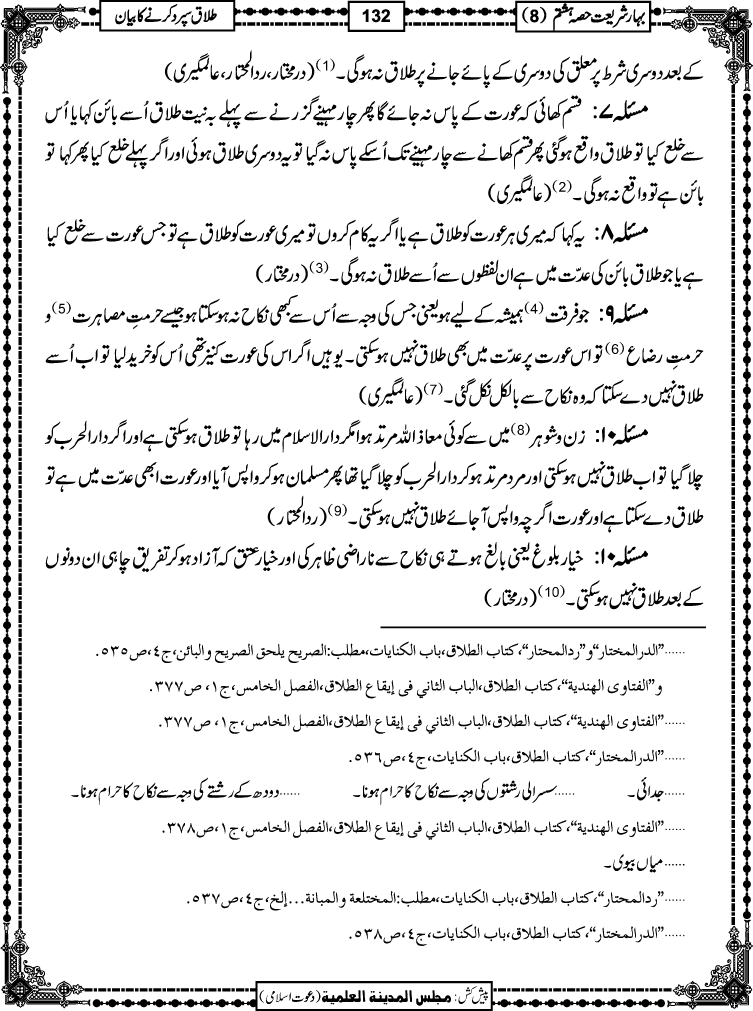 بہار شریعت حصہ ہشتم (8)
132
طلاق سپرد کرنے کا بیان
کے بعد دوسری شرط پر معلق کی دوسری کے پائے جانے پر طلاق نہ ہوگی۔(1) (درمختار، ردالمختار، عالمگیری)
مسئلہ ۷: قسم کھائی کہ عورت کے پاس نہ جائے گا پھر چار مہینے گزرنے سے پہلے بہ نیت طلاق اُسے بائن کہا یا اُس
سے خلع کیا تو طلاق واقع ہوگئی پھر قسم کھانے سے چار مہینے تک اُسکے پاس نہ گیا تو یہ دوسری طلاق ہوئی اور اگر پہلے خلع کیا پھر کہا تو
بائن ہے تو واقع نہ ہوگی۔(2) (عالمگیری)
مسئلہ ۸: یہ کہا کہ میری ہر عورت کو طلاق ہے یا اگر یہ کام کروں تو میری عورت کو طلاق ہے تو جس عورت سے خلع کیا
ہے یا جو طلاق بائن کی عدّت میں ہے ان لفظوں سے اُسے طلاق نہ ہوگی۔(3) (درمختار)
مسئلہ ۹: جو فرقت (4) ہمیشہ کے لیے ہو یعنی جس کی وجہ سے اُس سے کبھی نکاح نہ ہو سکتا ہو جیسے حرمتِ مصاہرت (5) و
حرمتِ رضاع (6) تو اس عورت پر عدّت میں بھی طلاق نہیں ہو سکتی۔ یوہیں اگر اس کی عورت کنیز تھی اُس کو خرید لیا تو اب اُسے
طلاق نہیں دے سکتا کہ وہ نکاح سے بالکل نکل گئی۔(7) (عالمگیری)
مسئلہ ۱۰: زن و شوہر (8) میں سے کوئی معاذ اللہ مرتد ہوا مگر دارالاسلام میں رہا تو طلاق ہو سکتی ہے اور اگر دارالحرب کو
چلا گیا تو اب طلاق نہیں ہو سکتی اور مرد مرتد ہو کر دارالحرب کو چلا گیا تھا پھر مسلمان ہو کر واپس آیا اور عورت ابھی عدّت میں ہے تو
طلاق دے سکتا ہے اور عورت اگرچہ واپس آجائے طلاق نہیں ہو سکتی۔(9) (ردالمختار)
مسئلہ ۱۰: خیار بلوغ یعنی بالغ ہوتے ہی نکاح سے ناراضی ظاہر کی اور خیار عتق کہ آزاد ہو کر تفریق چاہی ان دونوں
کے بعد طلاق نہیں ہو سکتی۔(10) (درمختار)
......”الدرالمختار“و”ردالمحتار“،کتاب الطلاق،باب الکنایات،مطلب:الصریح یلحق الصریح والبائن،ج٤،ص٥٣٥.
و”الفتاوی الھندیة“،کتاب الطلاق،الباب الثاني فی إیقاع الطلاق،الفصل الخامس،ج١، ص٣٧٧.
......”الفتاوی الھندیة“،کتاب الطلاق،الباب الثاني فی إیقاع الطلاق،الفصل الخامس،ج١، ص٣٧٧.
......”الدرالمختار“، کتاب الطلاق،باب الکنایات، ج٤،ص٥٣٦.
......جدائی۔ ......سسرالی رشتوں کی وجہ سے نکاح کا حرام ہونا۔ ......دودھ کے رشتے کی وجہ سے نکاح کا حرام ہونا۔
......”الفتاوی الھندیة“،کتاب الطلاق،الباب الثاني فی إیقاع الطلاق،الفصل الخامس،ج١،ص٣٧٨.
......میاں بیوی۔
......”ردالمحتار“، کتاب الطلاق،باب الکنایات، مطلب:المختلعة والمبانة...إلخ،ج٤،ص٥٣٧.
......”الدرالمختار“، کتاب الطلاق،باب الکنایات،ج٤،ص٥٣٨.
پیش کش: مجلس المدینة العلمیة (دعوت اسلامی)